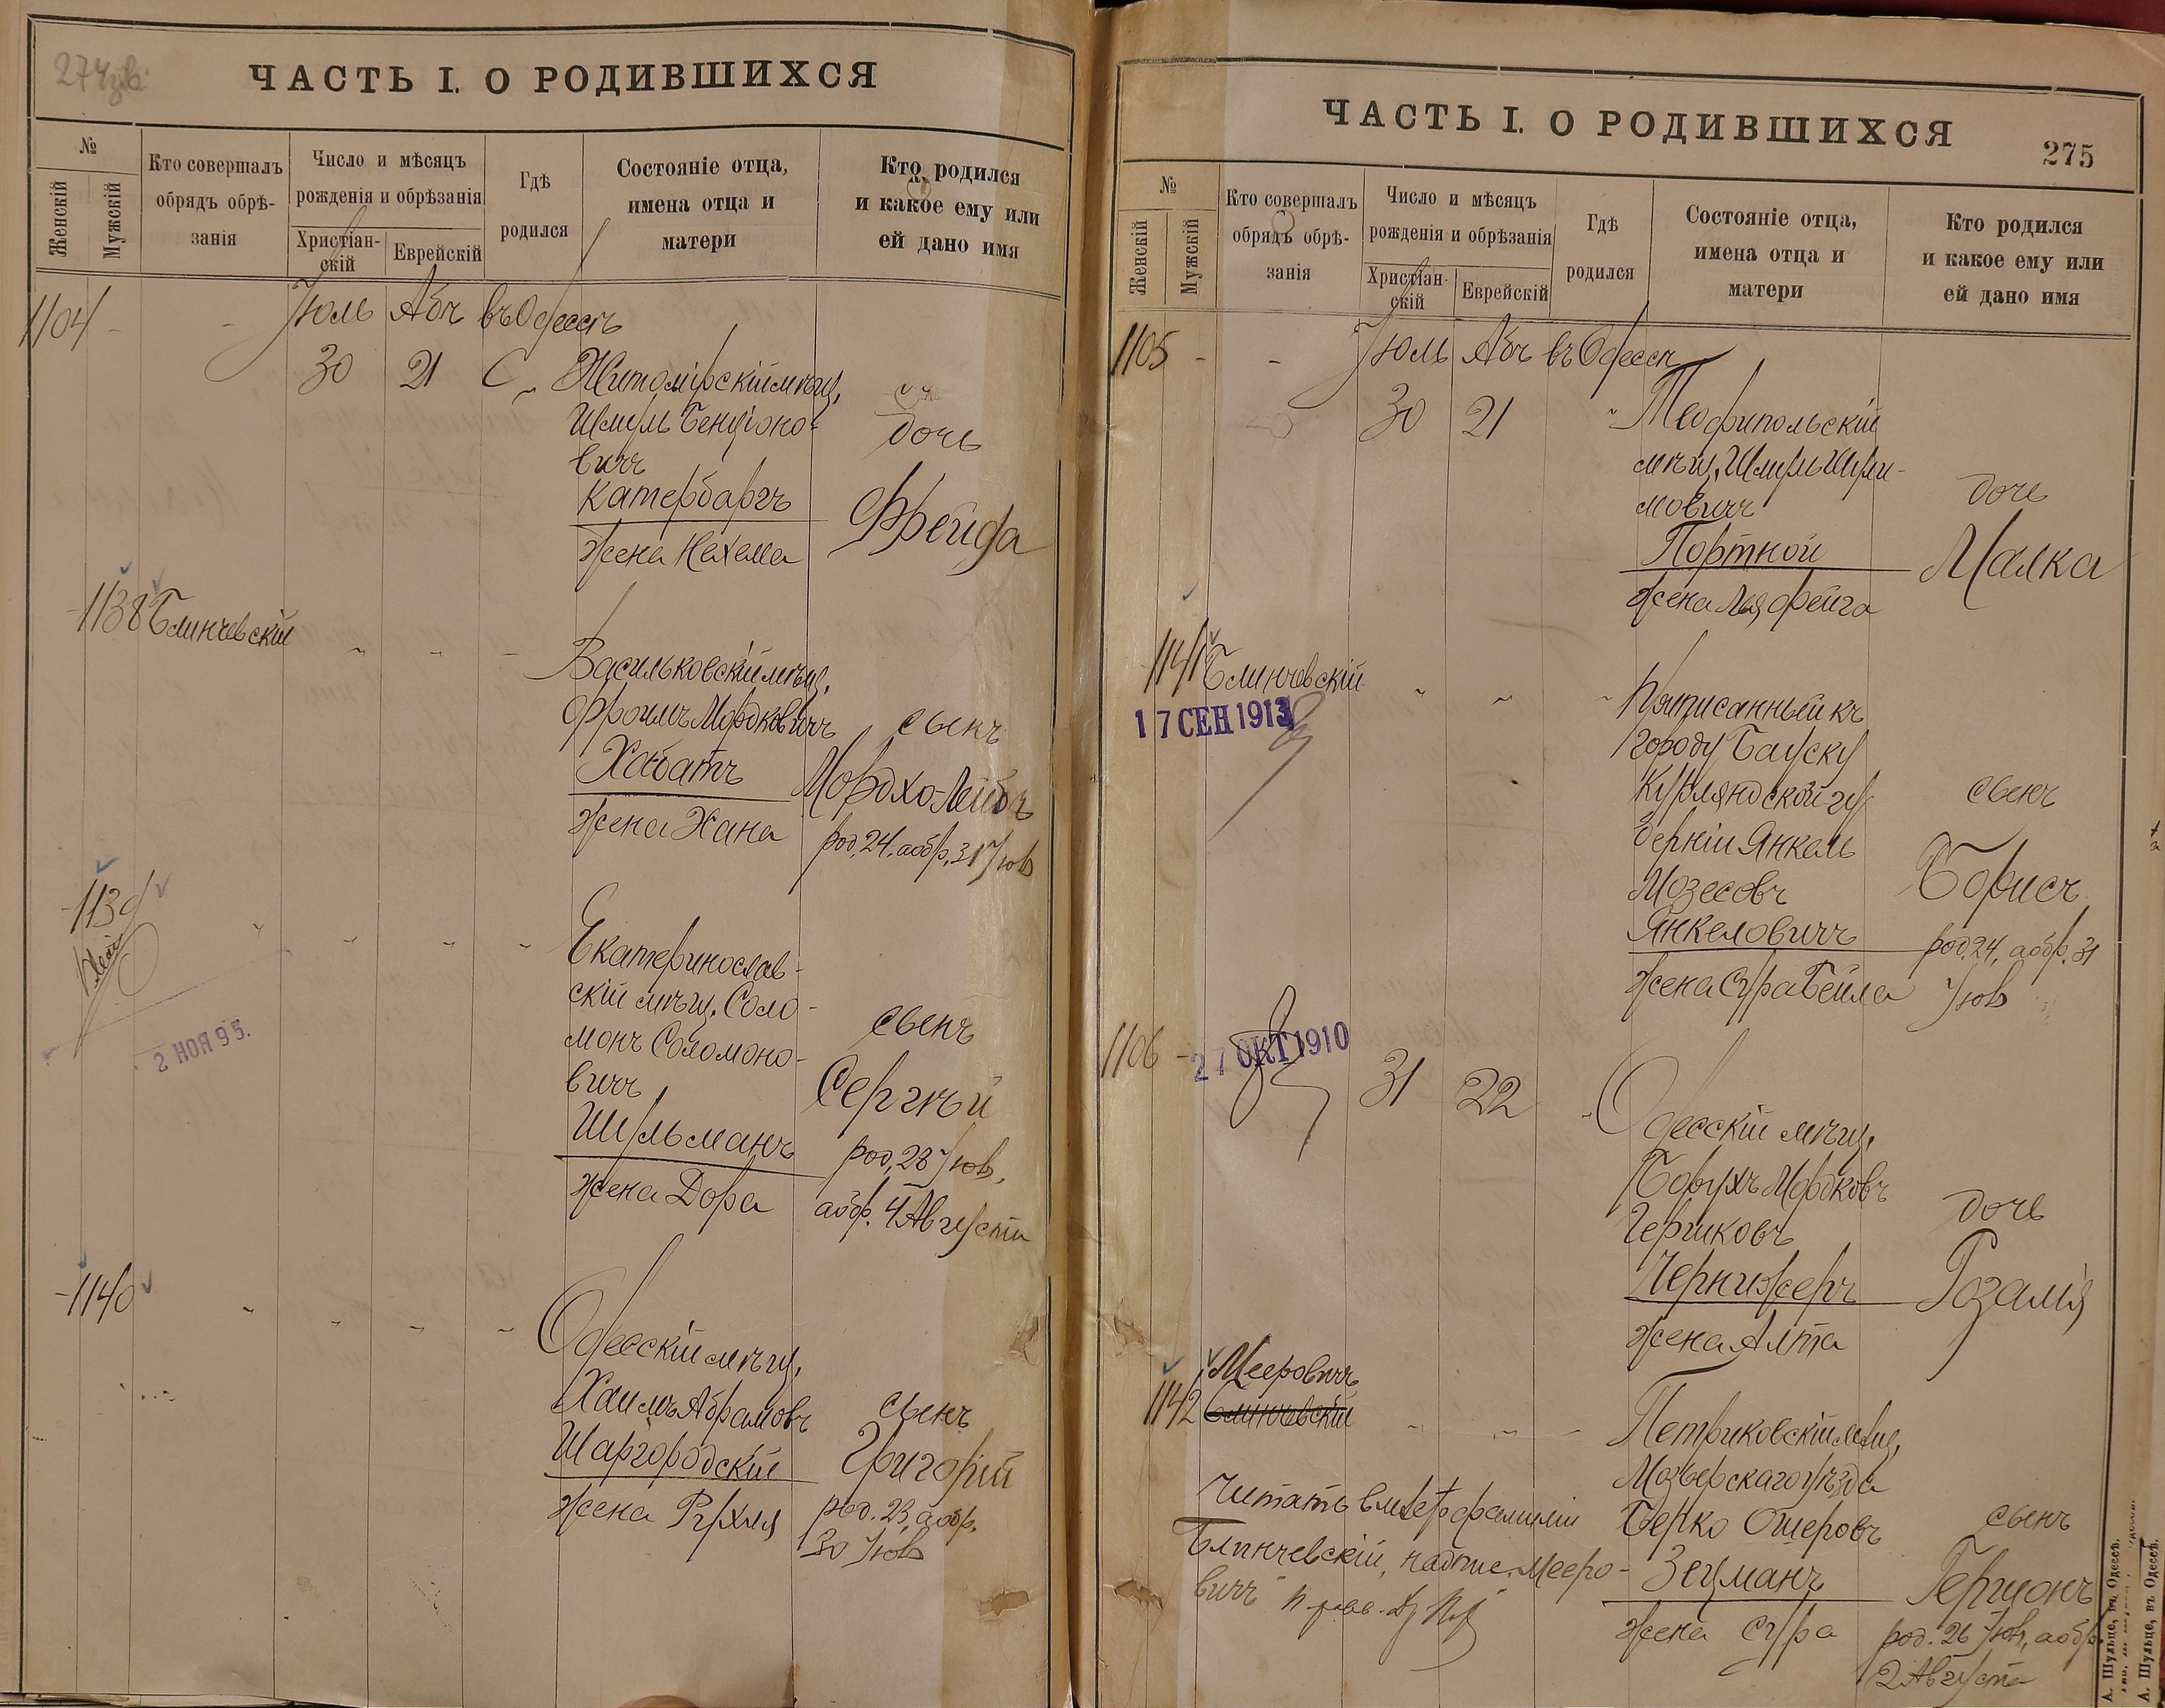 274 зв.
ЧАСТЬ I. О РОДИВШИХСЯ
№
Женскій
Мужскій
Кто совершалъ
обрядъ обрѣ-
занія
Число и мѣсяцъ
рожденія и обрѣзанія
Христіан-
скій
Еврейскій
Гдѣ
родился
Состояніе отца,
имена отца и
матери
Кто родился
и какое ему или
ей дано имя
1104 - - Іюль Абъ въ Одессѣ
30 21 Житомірскій мѣщ.
Шмуль Бенціоно-
вичъ
Катербаргъ
жена Нехама
дочь
Фрейда
1138 Блинчевскій
Васильковскій мѣщ.
Фроимъ Мордковичъ
Хабатъ
жена Хана
сынъ
Мордхо-Лейбъ
род. 24, а обр. 31 Іюля
1139
2 НОЯ 95.
Екатеринослав-
скій мѣщ. Соло-
монъ Соломоно-
вичъ
Шульманъ
жена Дора
сынъ
Сергѣй
род. 28 Іюля,
а обр. 4 Августа
1140
Одесскій мѣщ.
Хаимъ Абрамовъ
Шаргородскій
жена Рухля
сынъ
Григорій
род. 23, а обр.
30 Іюля
ЧАСТЬ I. О РОДИВШИХСЯ
275
№
Женскій
Мужскій
Кто совершалъ
обрядъ обрѣ-
занія
Число и мѣсяцъ
рожденія и обрѣзанія
Христіан-
скій
Еврейскій
Гдѣ
родился
Состояніе отца,
имена отца и
матери
Кто родился
и какое ему или
ей дано имя
1105 - - Іюль Абъ въ Одессѣ
30 21 Теофипольскій
мѣщ. Шмуль
мовичъ
Портной
жена Лея Фейга
дочь
Малка
1141 Блинчевскій
17 СЕН 1913
Приписанный къ
городу Бауску
Курляндской гу-
берніи Янкель
Мозесовъ
Янкеловичъ
жена Сура Бейла
сынъ
Борисъ
род. 24, а обр. 31
Іюля
1106 -
27 ОКТ 1910
31 22
Одесскій мѣщ.
Борухъ Мордковъ
Гершковъ
жена Алта
дочь
Розалія
Мееровичъ
1142 Блинчевскій
Петриковскій мѣщ.
Мозырскаго уѣзда
Берко Ошеровъ
Зецманъ
жена Сура
сынъ
Гершонъ
род. 26 Іюля, а обр.
2 Августа
Читать вмѣсто фамиліи
Блинчевскій, надпис. Мееро-
вичъ
А. Шульце, въ Одессѣ.
А. Шульце, въ Одессѣ.